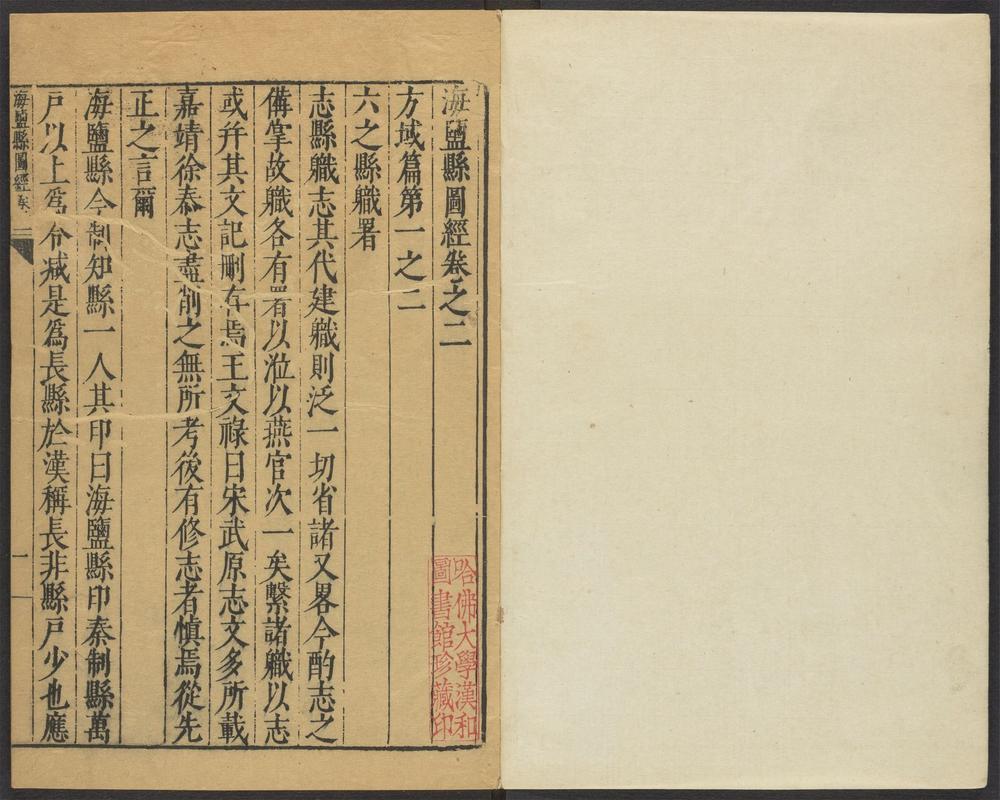 海鹽縣圖經卷之二
方域篇第一之二
六之縣職署
志縣職志其代建職則泛一切省諸又畧今酌志之
備掌故職各有署以涖以燕官次一矣繫諸職以志
或幷其文記刪存焉王文祿曰宋武原志文多所載
嘉靖徐泰志盡削之無所考後有修志者慎焉從先
正之言爾
海鹽縣今制知縣一人其印曰海鹽縣印秦制縣萬
戸以上爲令减是爲長縣於漢稱長非縣戸少也應
海鹽縣圖經 卷二
一
哈佛大學漢和
圖書館珍藏印